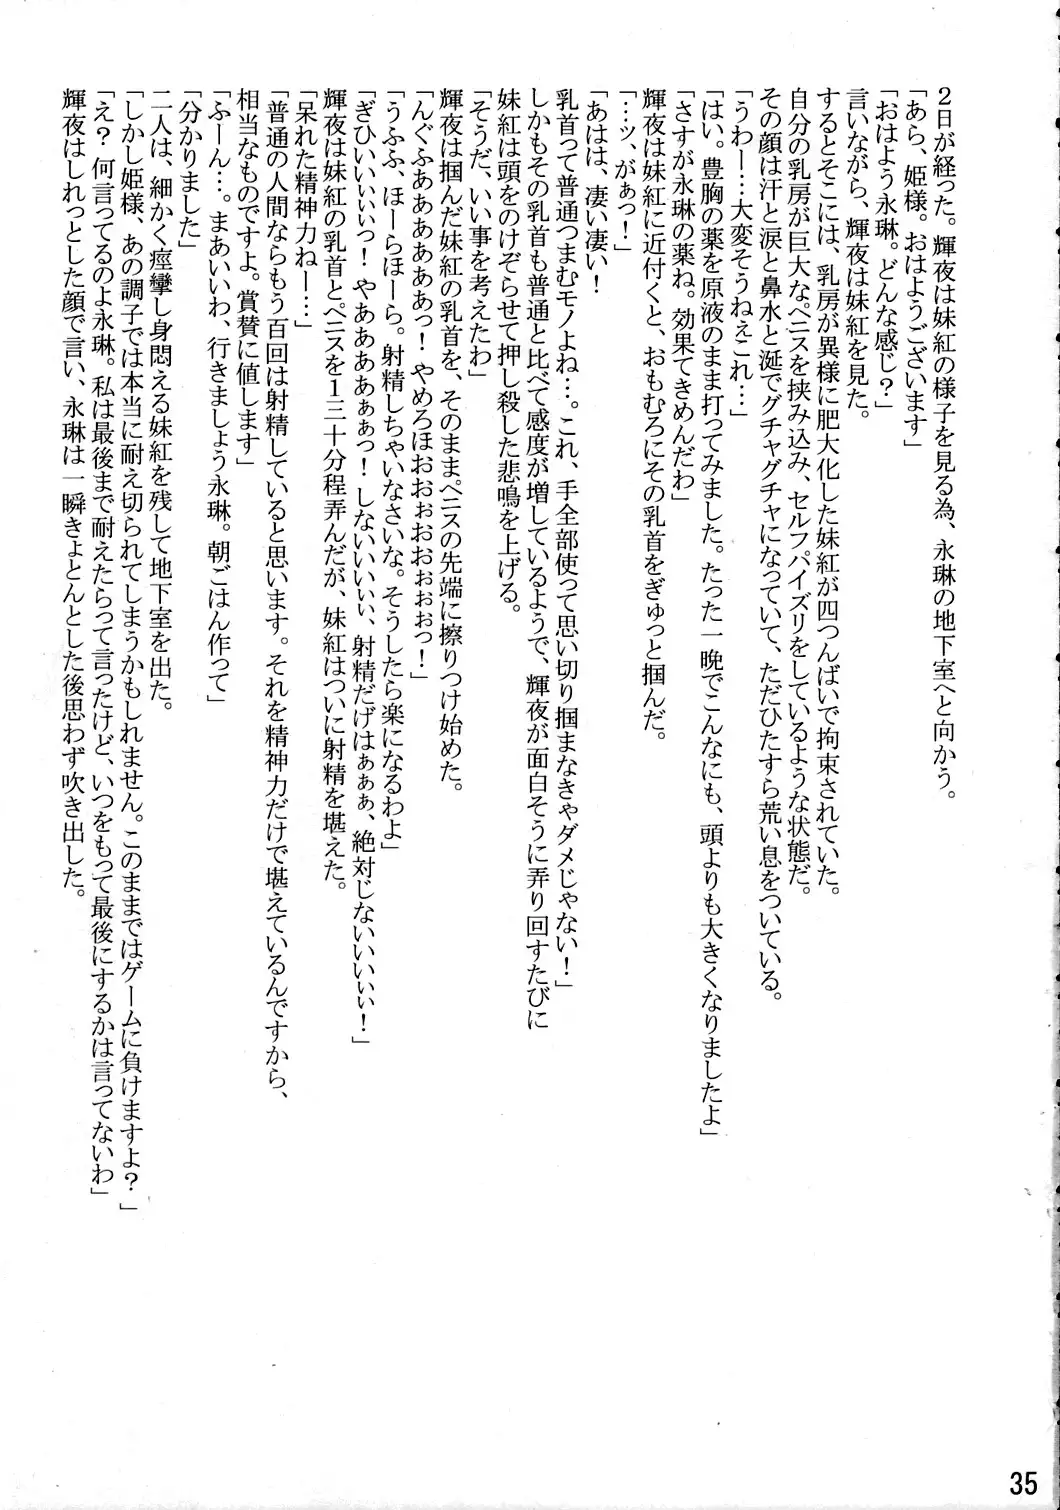 2日が経った。輝夜は妹紅の様子を見る為、永琳の地下室へと向かう。
「あら、姫様。おはようございます」
「おはよう永琳。どんな感じ？」
言いながら、輝夜は妹紅を見た。
するとそこには、乳房が異様に肥大化した妹紅が四つんばいで拘束されていた。
自分の乳房が巨大なペニスを挟み込み、セルフパイズリをしているような状態だ。
その顔は汗と涙と鼻水と涎でグチャグチャになっていて、ただひたすら荒い息をついている。
「うわー…大変そうねぇこれ…」
「はい。豊胸の薬を原液のまま打ってみました。たった一晩でこんなにも、頭よりも大きくなりましたよ」
「さすが永琳の薬ね。効果てきめんだわ」
輝夜は妹紅に近付くと、おもむろにその乳首をぎゅっと掴んだ。
「…ッ、がぁっ！」
「あはは、凄い凄い！
乳首って普通つまむモノよね…。これ、手全部使って思い切り掴まなきゃダメじゃない！」
しかもその乳首も普通と比べて感度が増しているようで、輝夜が面白そうに弄り回すたびに
妹紅は頭をのけぞらせて押し殺した悲鳴を上げる。
「そうだ、いい事を考えたわ」
輝夜は掴んだ妹紅の乳首を、そのままペニスの先端に擦りつけ始めた。
「んぐふああああああっ！やめろほおおおおおぉぉぉっ！」
「うふふ、ほーらほーら。射精しちゃいなさいな。そうしたら楽になるわよ」
「ぎひいいいぃっ！やああああぁぁっ！しないいいぃぃ、射精だげはぁぁぁ、絶対じないいいいぃぃ！」
輝夜は妹紅の乳首とペニスを1三十分程弄んだが、妹紅はついに射精を堪えた。
「呆れた精神力ねー…」
「普通の人間ならもう百回は射精していると思います。それを精神力だけで堪えているんですから、
相当なものですよ。賞賛に値します」
「ふーん…。まあいいわ、行きましょう永琳。朝ごはん作って」
「分かりました」
二人は、細かく痙攣し身悶える妹紅を残して地下室を出た。
「しかし姫様、あの調子では本当に耐え切られてしまうかもしれません。このままではゲームに負けますよ？」
「え？何言ってるのよ永琳。私は最後まで耐えたらって言ったけど、いつをもって最後にするかは言ってないわ」
輝夜はしれっとした顔で言い、永琳は一瞬きょとんとした後思わず吹き出した。
35